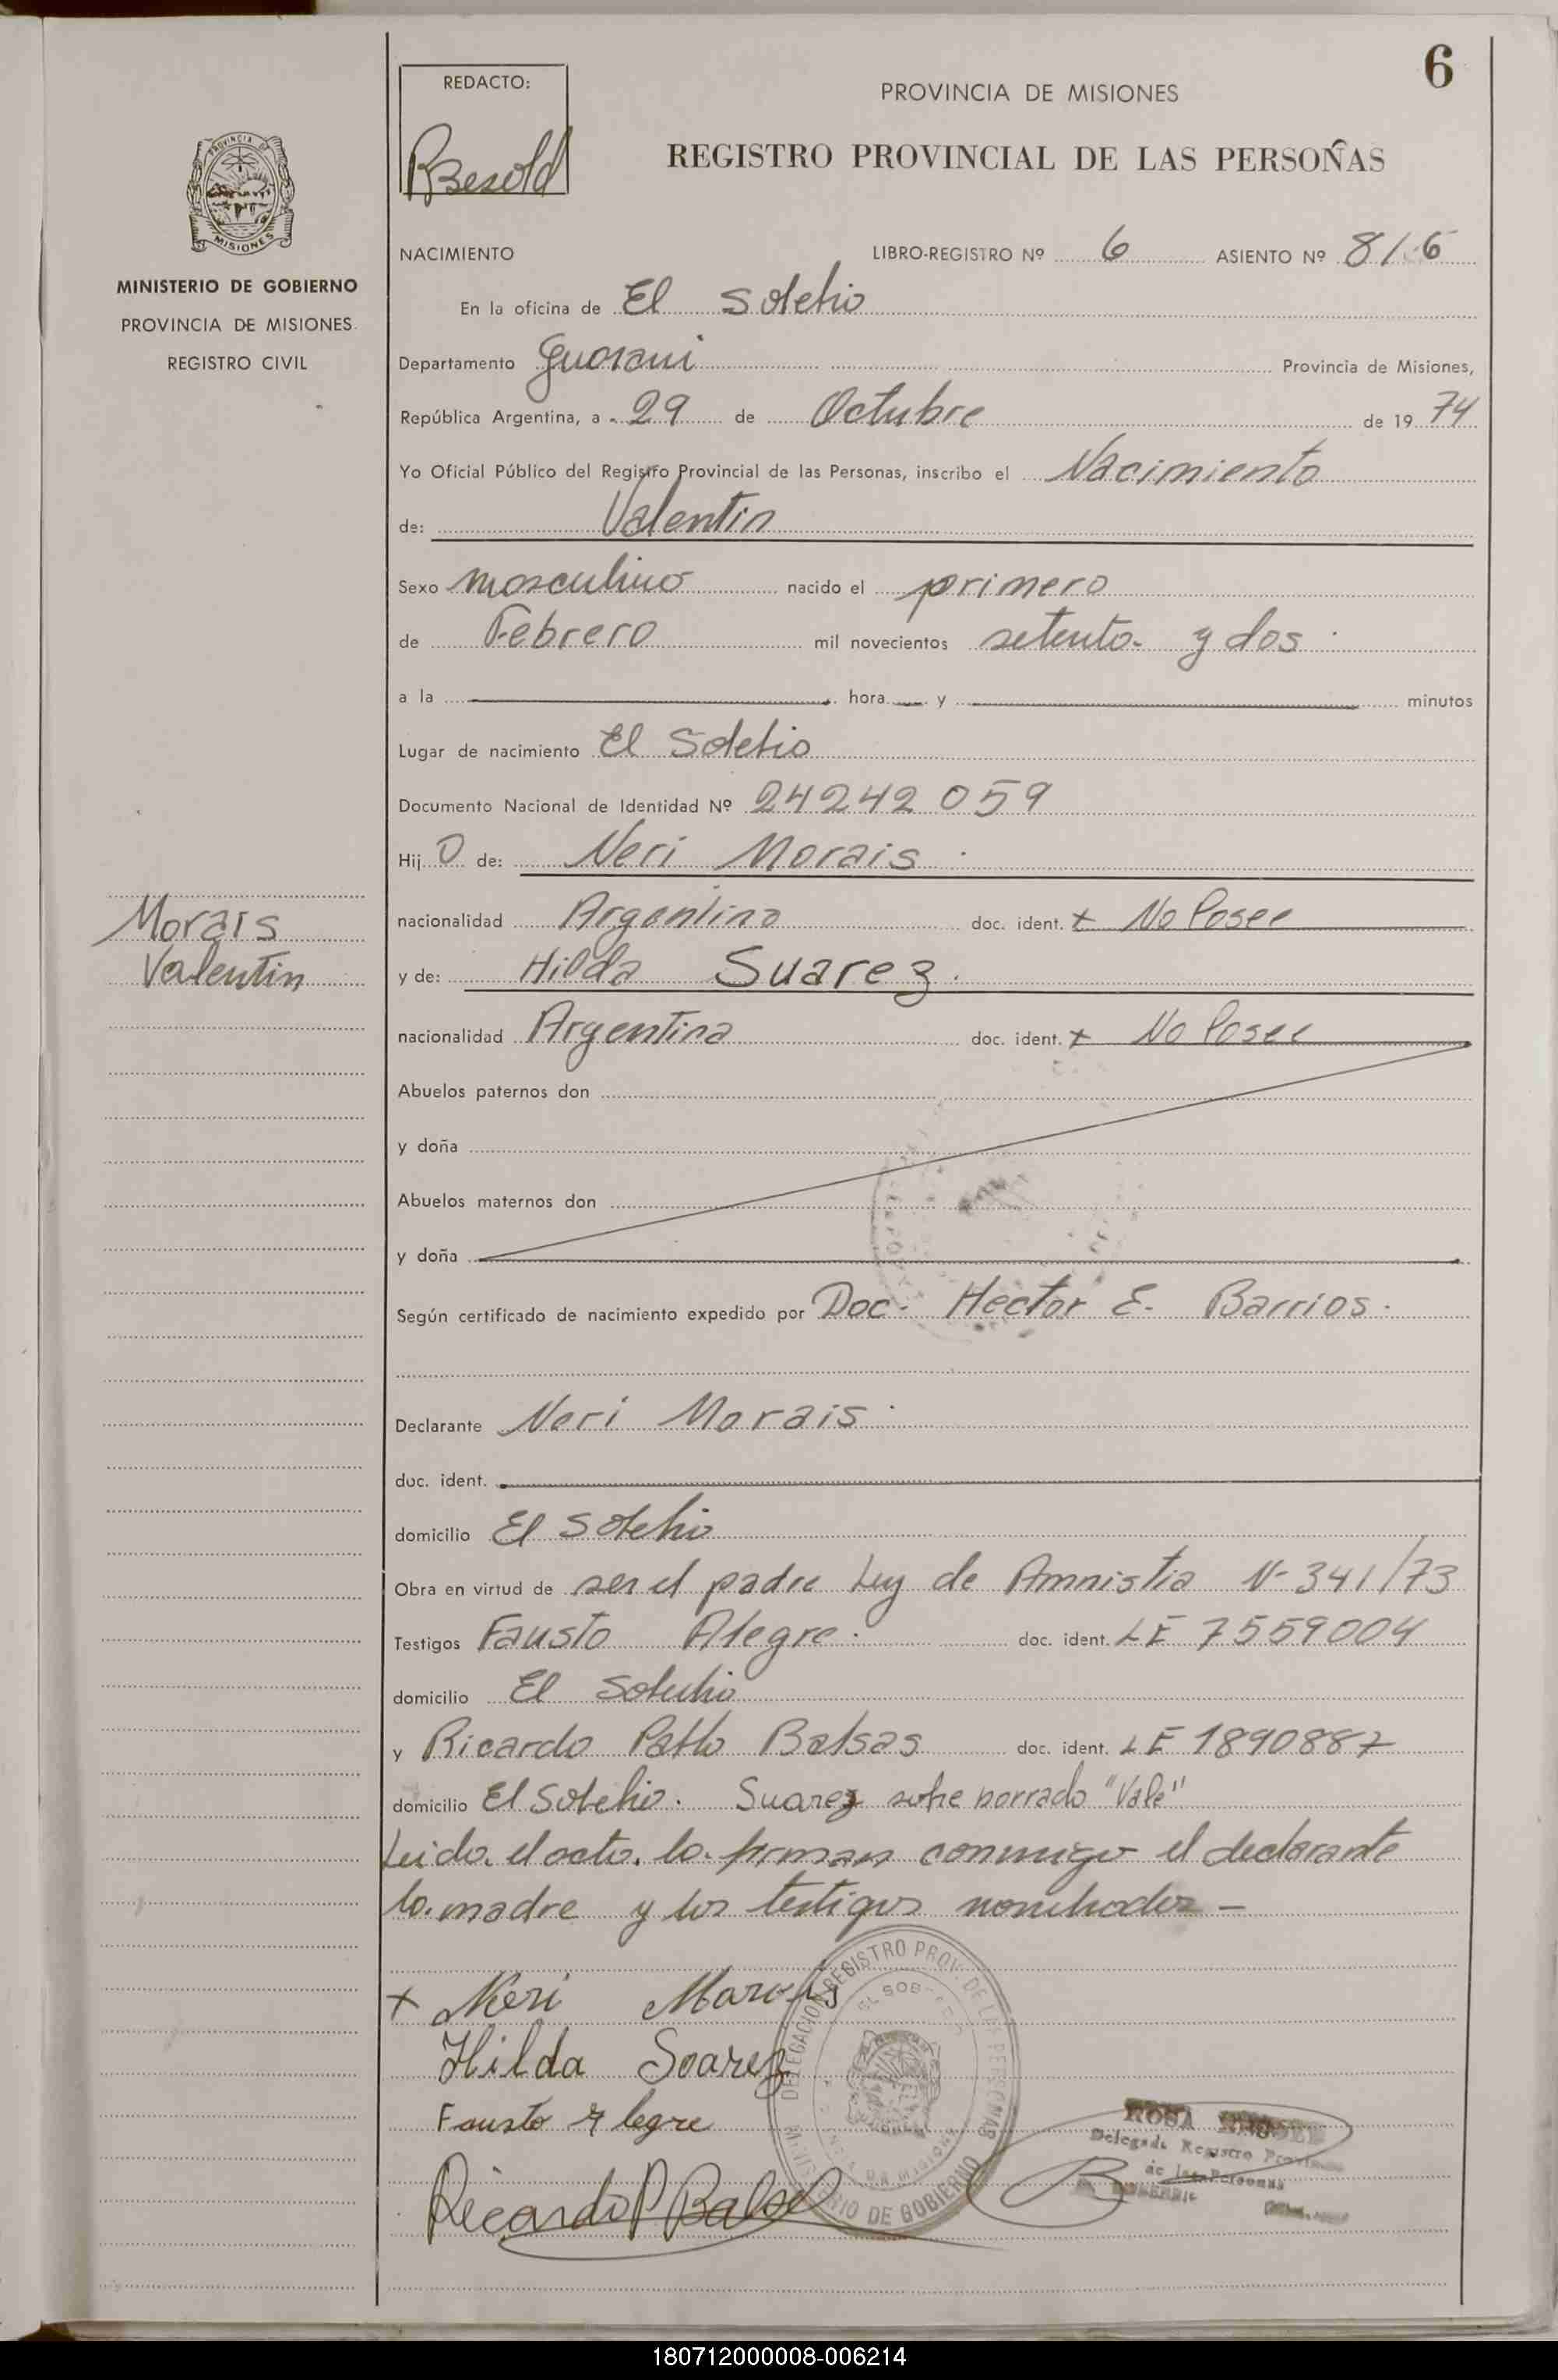 6
REDACTO:
PROVINCIA DE MISIONES
REGISTRO PROVINCIAL DE LAS PERSOÑAS
PROVINCIA DE
MISIONES
MINISTERIO DE GOBIERNO
PROVINCIA DE MISIONES
REGISTRO CIVIL
NACIMIENTO LIBRO-REGISTRO Nº 6 ASIENTO Nº
En la oficina de El Soberbio
Departamento Guarani Provincia de Misiones,
República Argentina, a 29 de Octubre de 1974
Yo Oficial Público del Registro Provincial de las Personas, inscribo el Nacimiento
de: Valentin
Sexo masculino nacido el primero
de Febrero mil novecientos setenta y dos
a la hora y minutos
Lugar de nacimiento El Soberbio
Documento Nacional de Identidad Nº 24242059
Hij O de: Neri Morais
nacionalidad Argentino doc. ident. No Posee
y de: Hilda Suarez
nacionalidad Argentina doc. ident. No Posee
Morais
Valentin
Abuelos paternos don
y doña
Abuelos maternos don
y doña
Según certificado de nacimiento expedido por Doc. Hector E. Barrios
Declarante Neri Morais
doc. ident.
domicilio El Soberbio
Obra en virtud de ser el padre Ley de Amnistia N- 341/73
Testigos Fausto Alegre doc. ident. LE 7559004
domicilio El Soberbio
y Ricardo Pablo Balsas doc. ident. LE 1890887
domicilio El Soberbio. Suarez sobre borrado "Vale"
Leido el acto, lo firman conmigo el declarante
la madre y los testigos nombrados -
x Neri Morais
Hilda Soarez
Fausto Alegre
Ricardo P Balsa
DELEGACION REGISTRO PROV. DE LAS PERSONAS
MINISTERIO DE GOBIERNO
ROSA
Delegada Registro Provincial
de las Personas
180712000008-006214